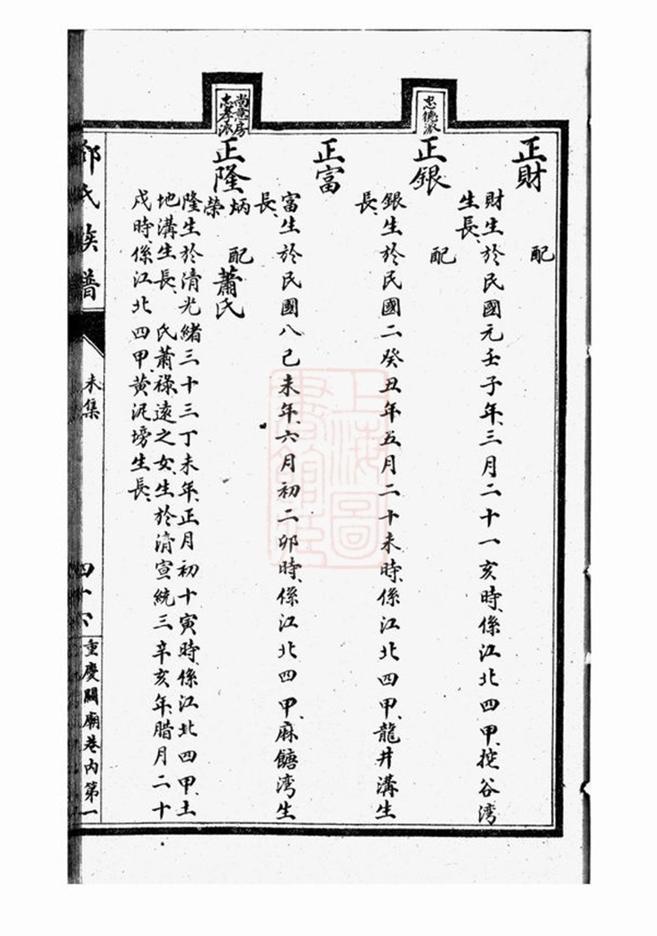 正財
配
財生於民國元壬子年三月二十一亥時係江北四甲挖谷湾
生長
忠德派
正銀
配
銀生於民國二癸丑年五月二十未時係江北四甲龍井溝生
長
正富
富生於民國八己未年六月初二卯時係江北四甲麻餹湾生
長
尚
房
志孝派
正隆
炳
榮
配蕭氏
隆生於清光緒三十三丁未年正月初十寅時係江北四甲土
地溝生長氏蕭祿遠之女生於清宣統三辛亥年腊月二十
戌時係江北四甲黄泥塝生長
氏族譜
未集
重慶關廟巷内第一
上海圖
書館藏